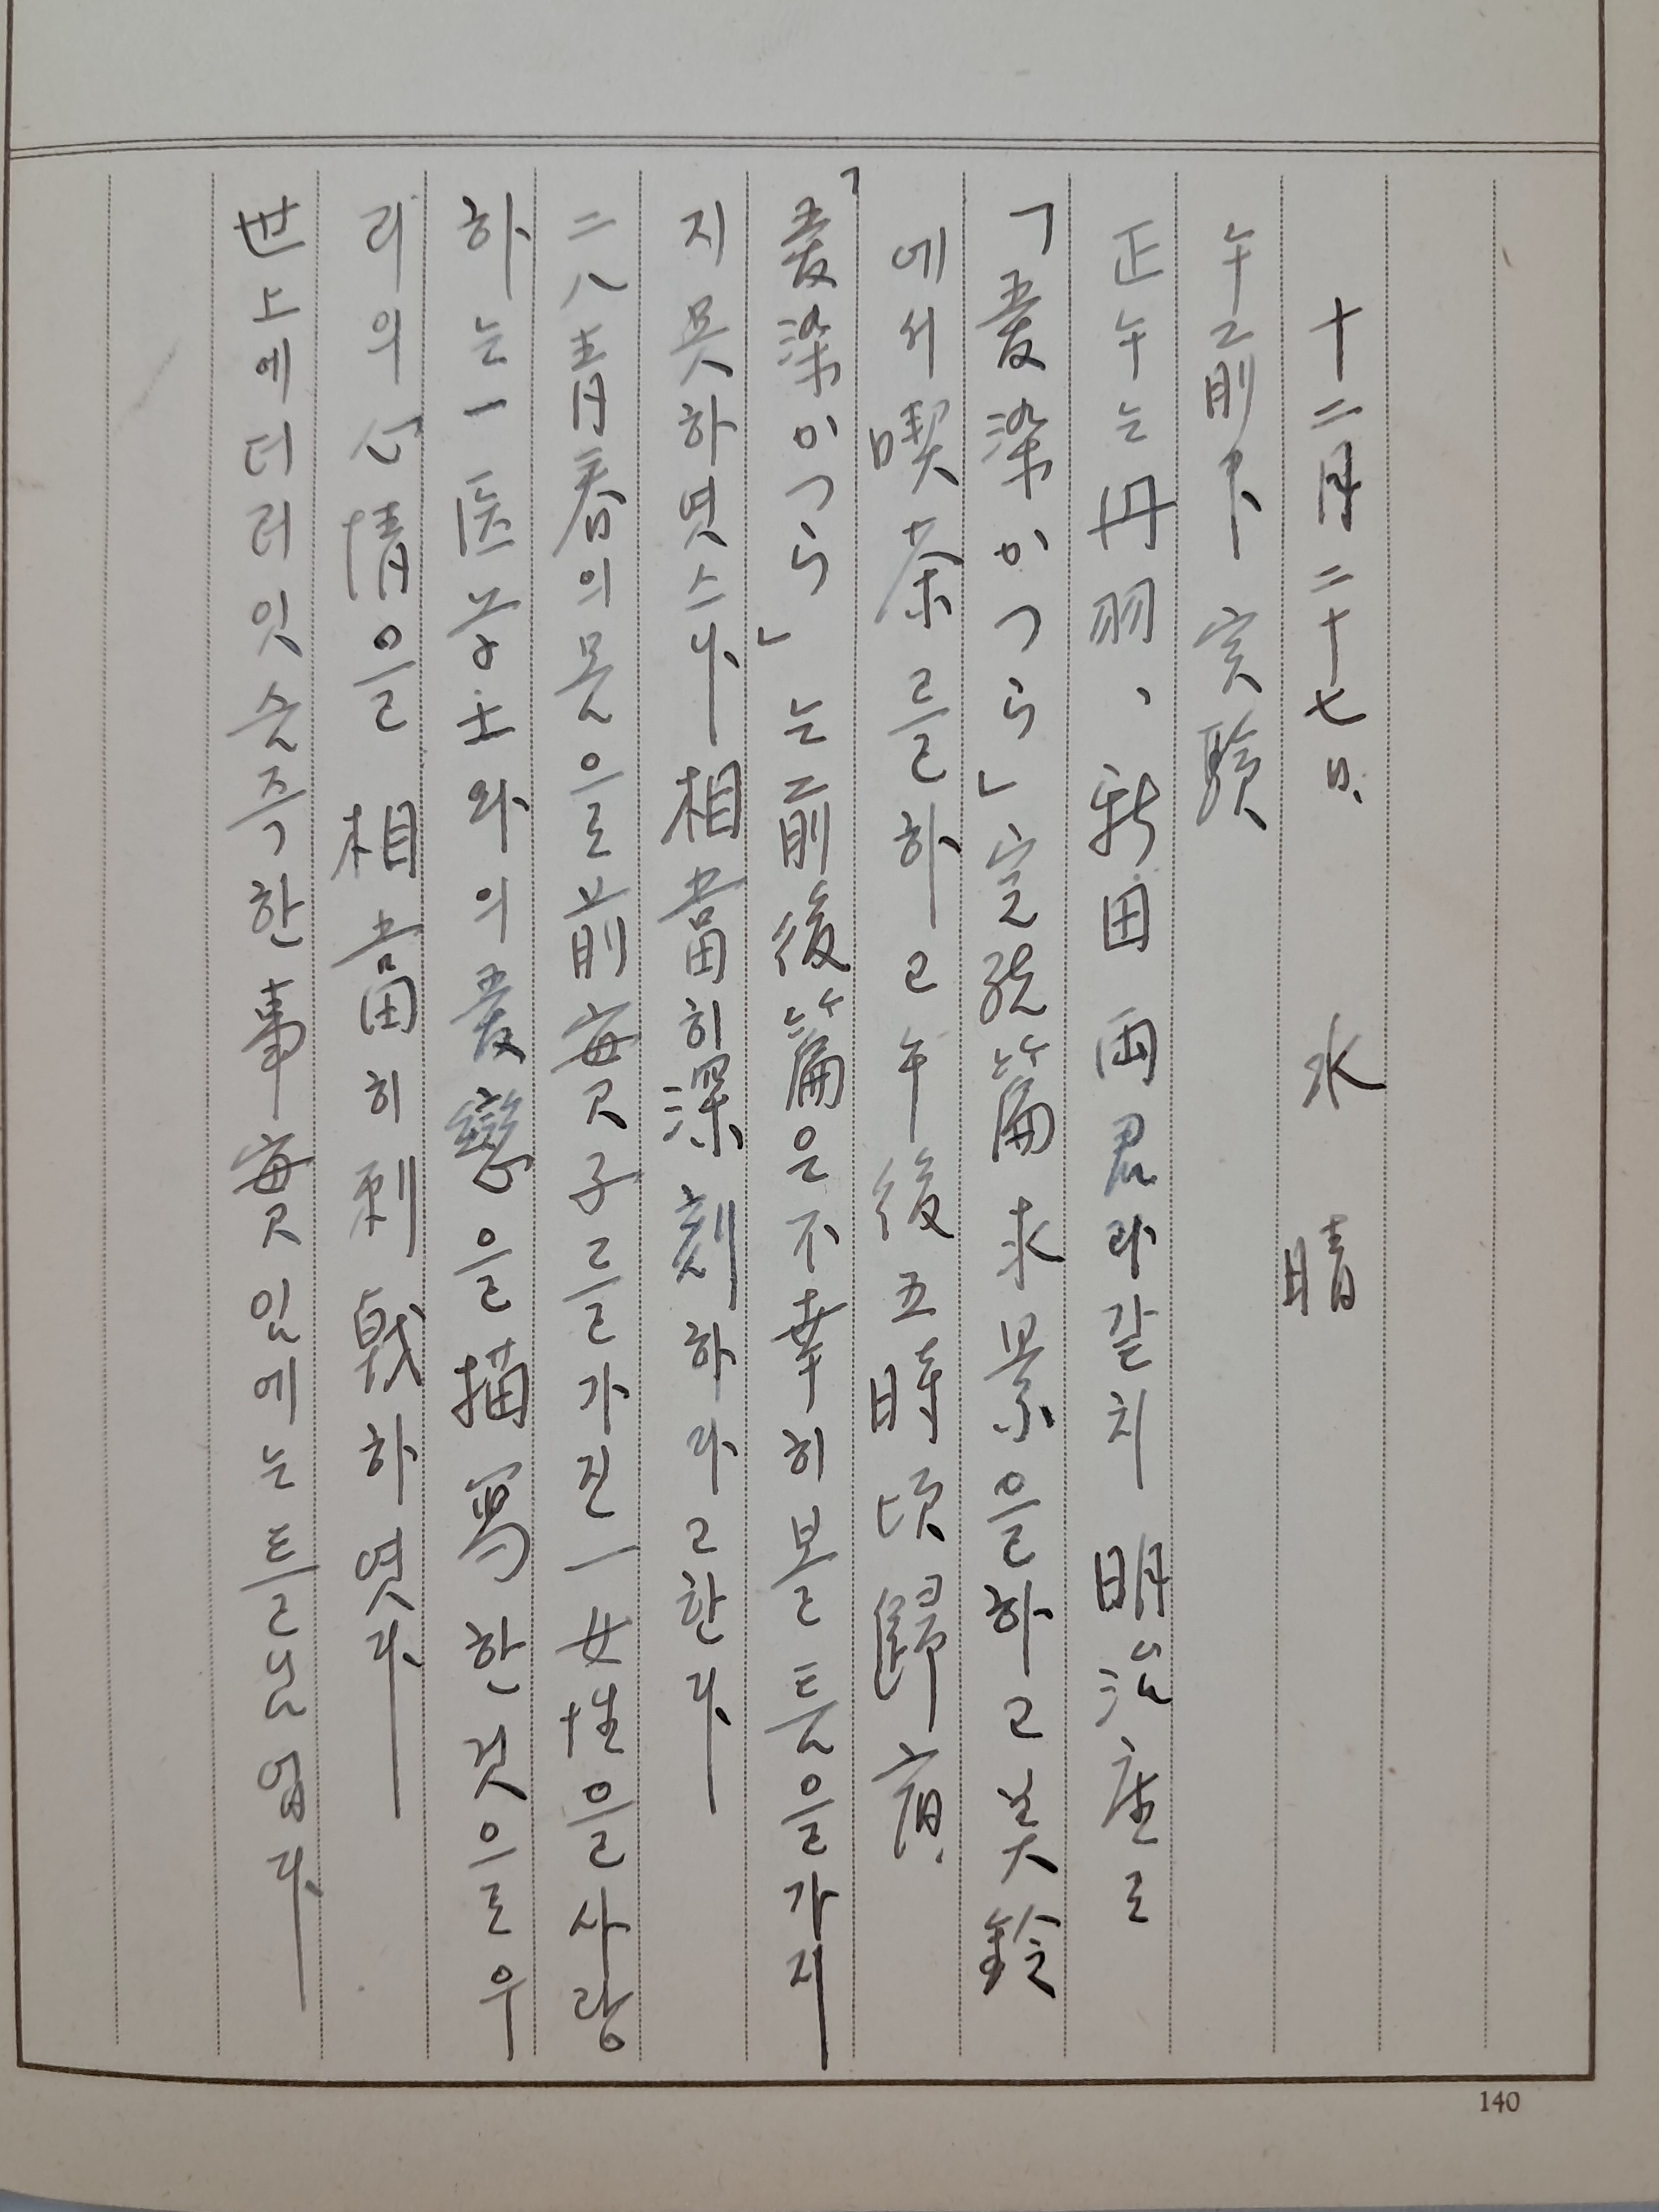 十二月二十七日 水 晴
午前中 実験
正午는 丹羽、新田 両君과 갈치 明治座로
「愛染かつら」完結篇 求景을하고 美鈴
에서 喫茶를하고 午後五時頃歸宿.
「愛染かつら」는 前後篇은 不幸히 볼 틈을 가지
지 못하엿스나 相當히 深刻하다고 한다.
二八靑春의 몸으로 前 実子를 가진 一 女性을 사랑
하는 一 医学士와의 愛戀을 描寫한 것으로 우
리의 心情을 相當히 刺戟하엿다.
世上에 더러 잇슴즉한 事実임에는 틀님업다.
140